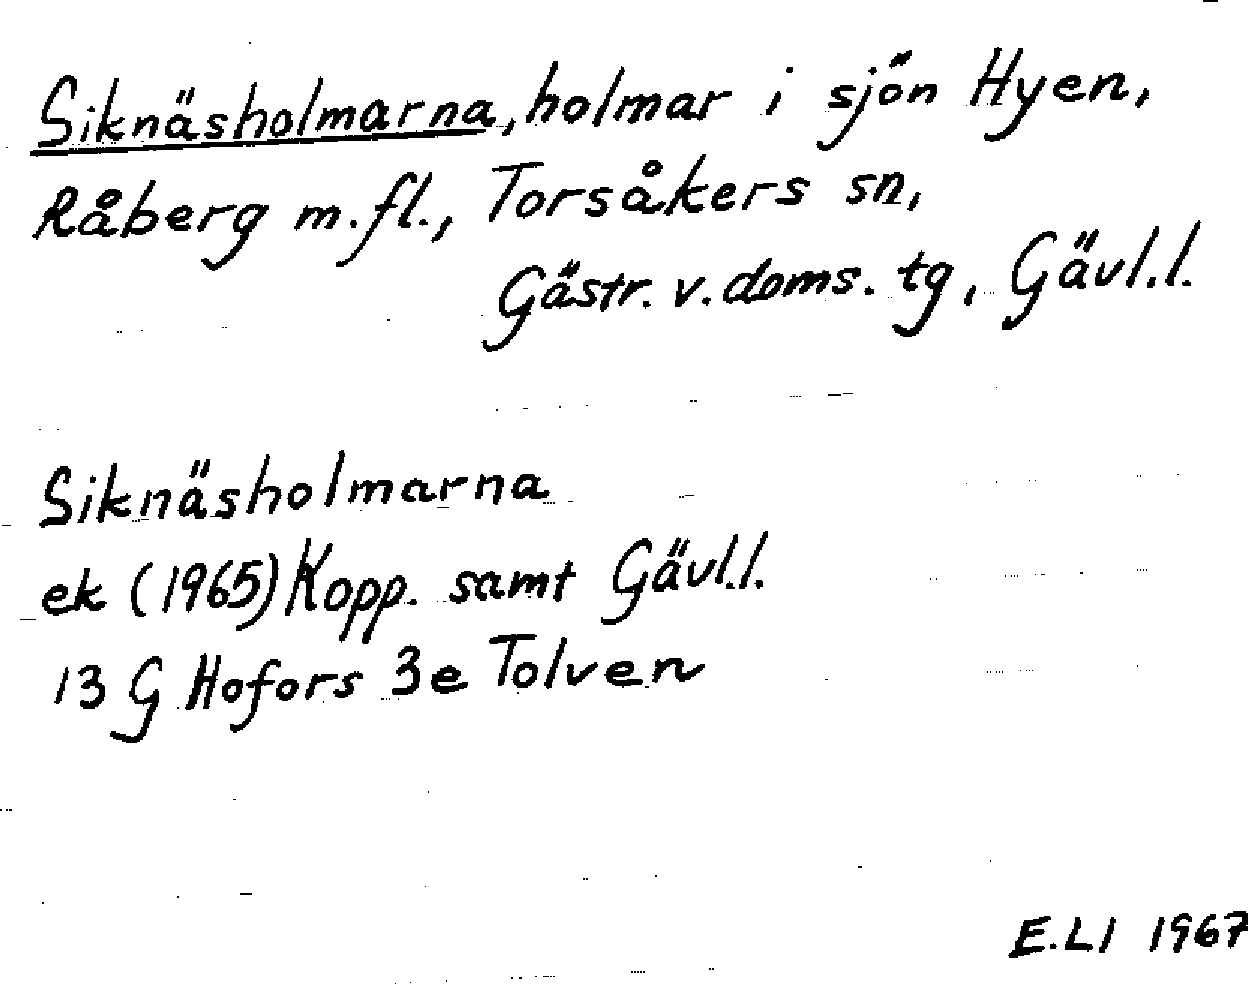 Siknäsholmarna, holmar i sjön Hyen,
Råberg m.fl., Torsåkers sn,
Gästr. v. doms. tg, Gävl.l.
Siknäsholmarna
ek (1965) Kopp. samt Gävl.l.
13 G Hofors 3e Tolven
E.LI 1967